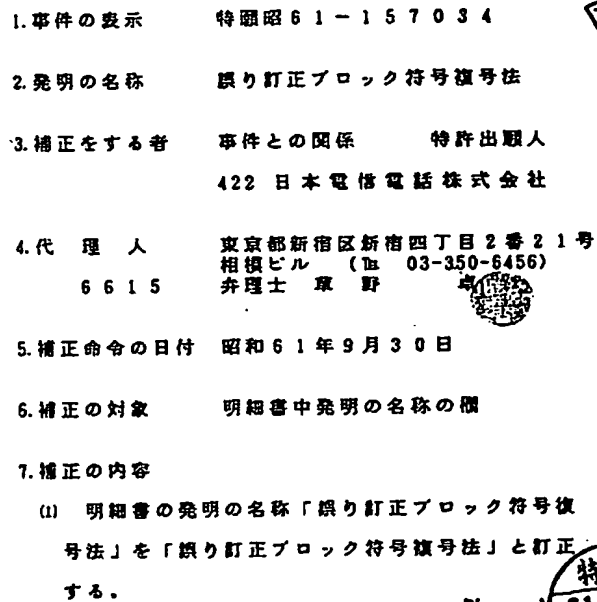 1.事件の表示 特願昭61-157034
2.発明の名称 誤り訂正ブロック符号復号法
3.補正をする者 事件との関係 特許出願人
422 日本電信電話株式会社
4.代理人 東京都新宿区新宿四丁目2番21号
相模ビル (℡ 03-350-6456)
6615 弁理士 草野 卓
5.補正命令の日付 昭和61年9月30日
6.補正の対象 明細書中発明の名称の欄
7.補正の内容
(1) 明細書の発明の名称「誤り訂正ブロック符号復
号法」を「誤り訂正ブロック符号復号法」と訂正
する。
特